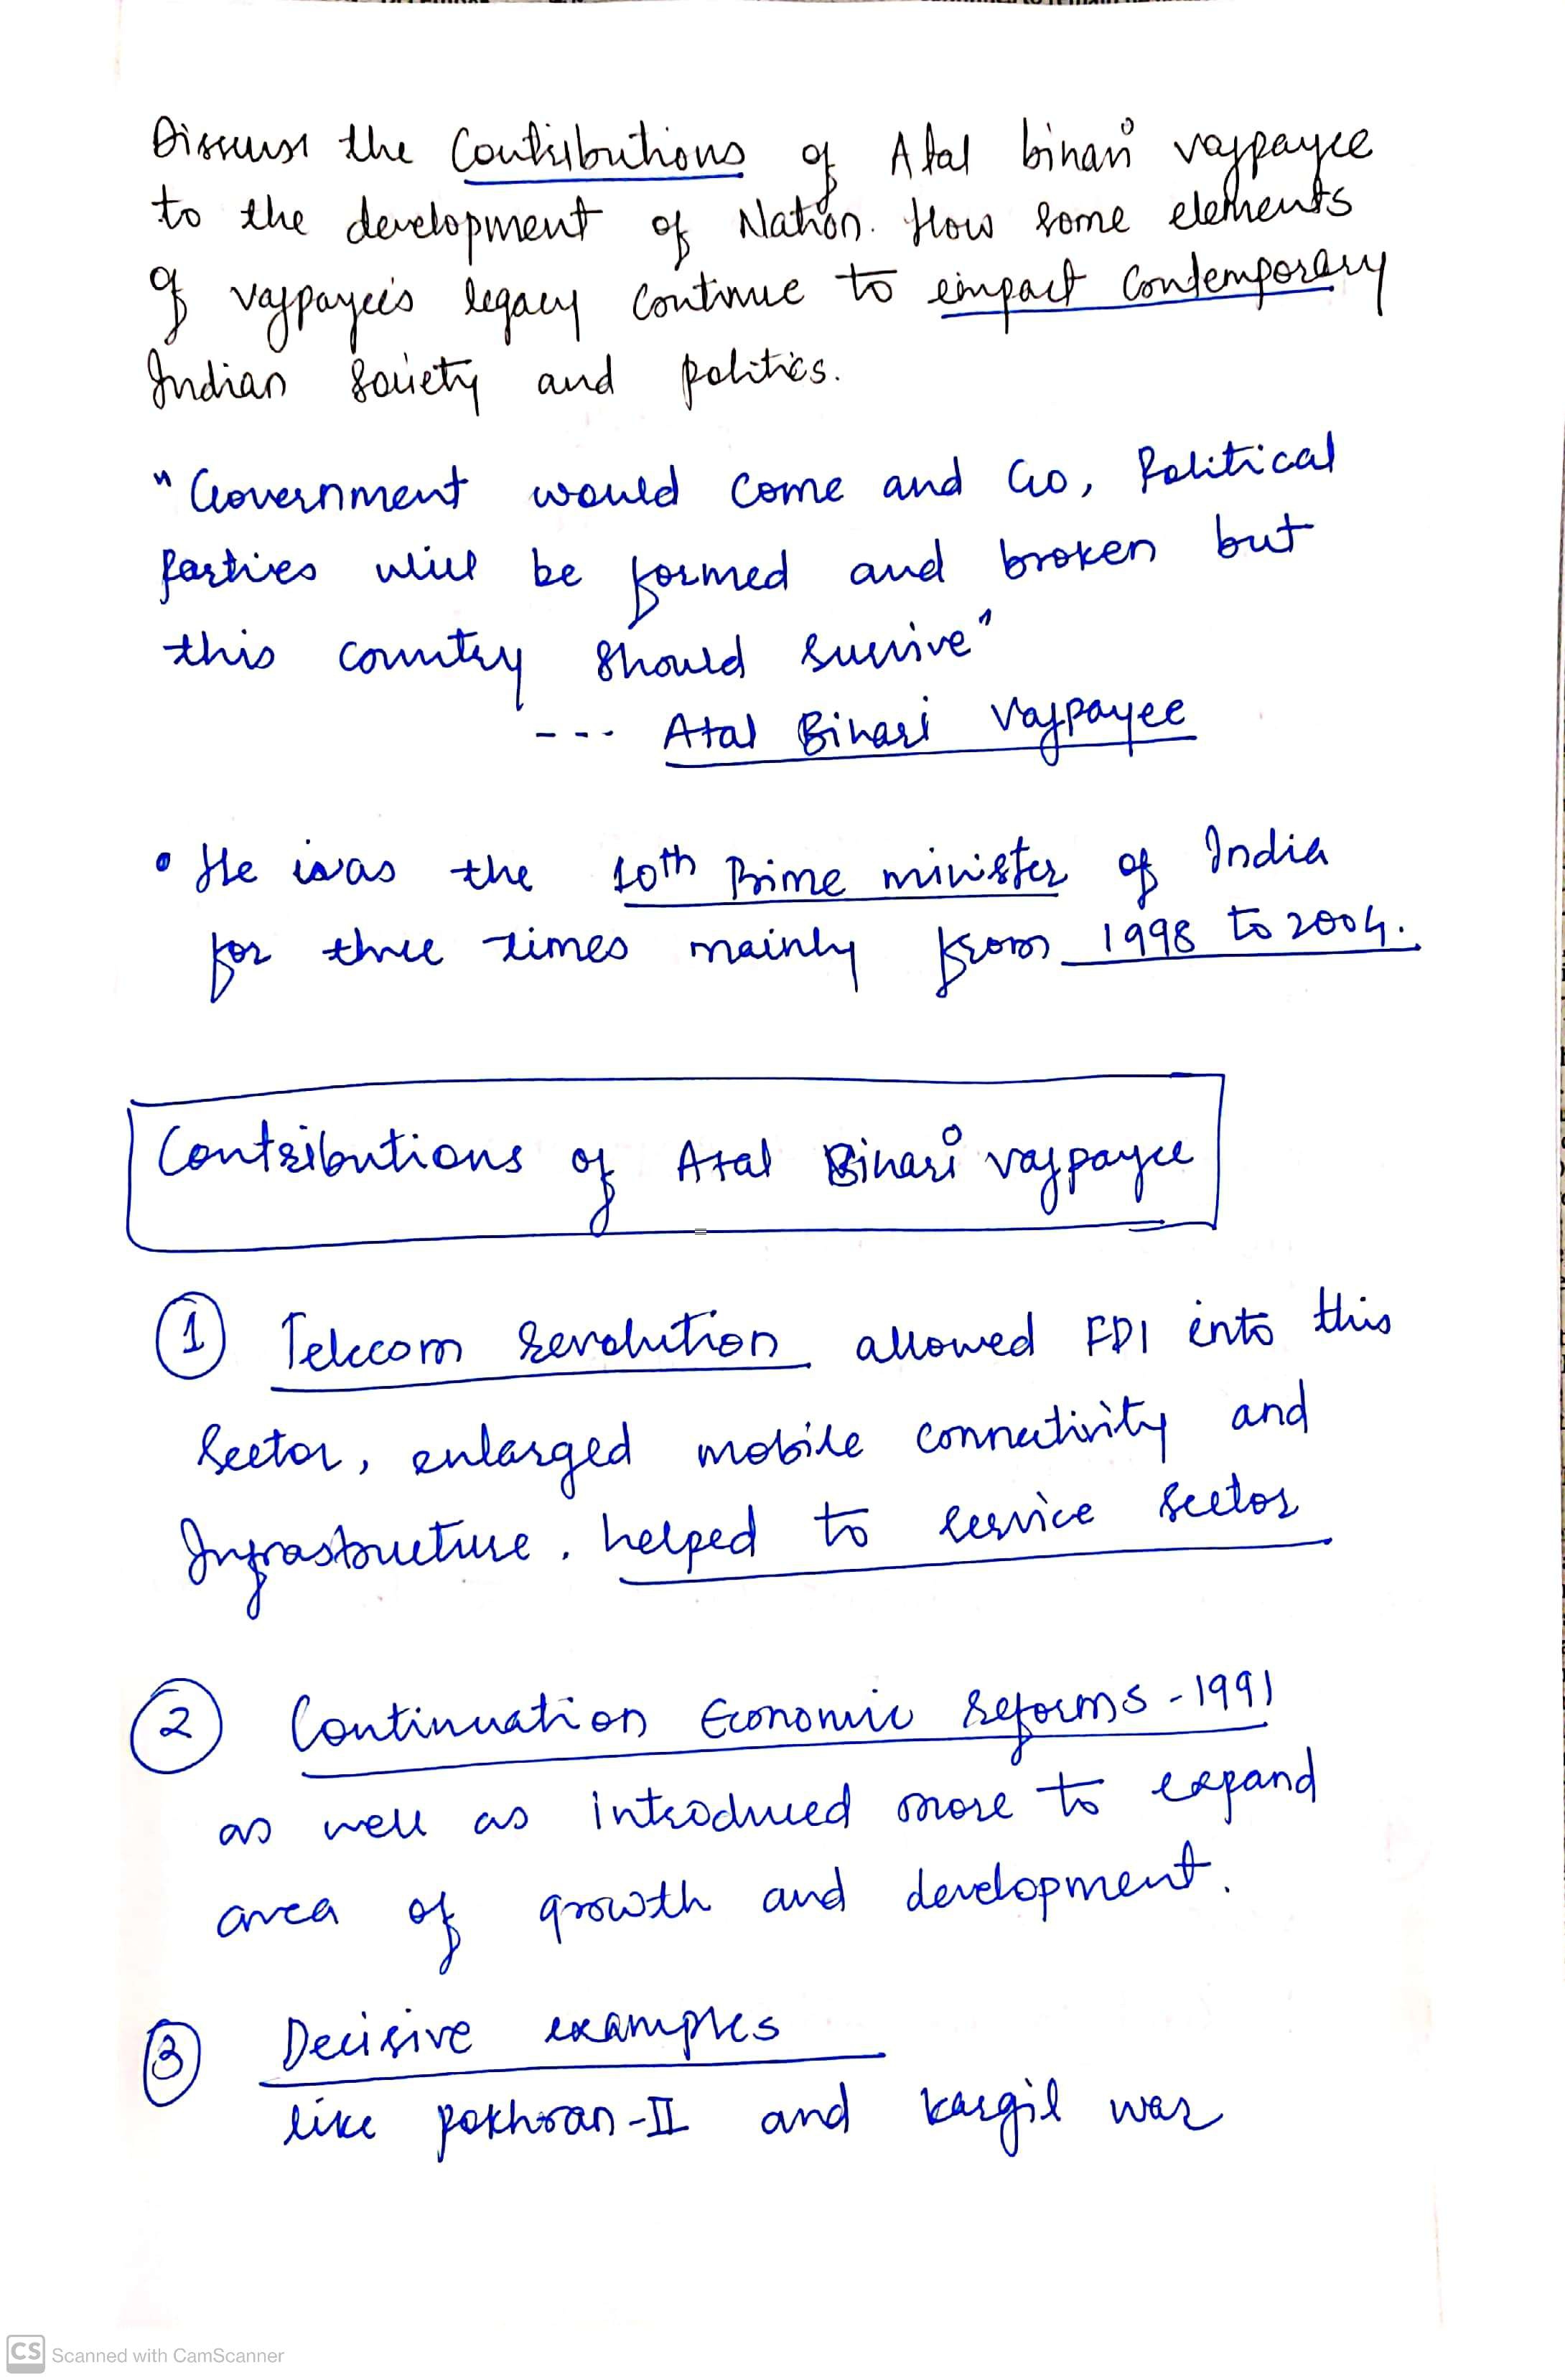 Discuss the Contributions of Atal bihari vajpayee
to the development of Nation. How some elements
of vajpayee's legacy continue to impact Contemporary
Indian society and politics.
"Government would come and Go, Political
parties will be formed and broken but
this country should survive"
--- Atal Bihari Vajpayee
• He was the 10th Prime minister of India
for three times mainly from 1998 to 2004.
Contributions of Atal Bihari vajpayee
1 Telecom revolution allowed FDI into this
sector, enlarged mobile connectivity and
Infrastructure. helped to service sector
2 Continuation Economic reforms - 1991
as well as introduced more to expand
area of growth and development.
3 Decisive examples
like pokhran-II and kargil war
CS Scanned with CamScanner